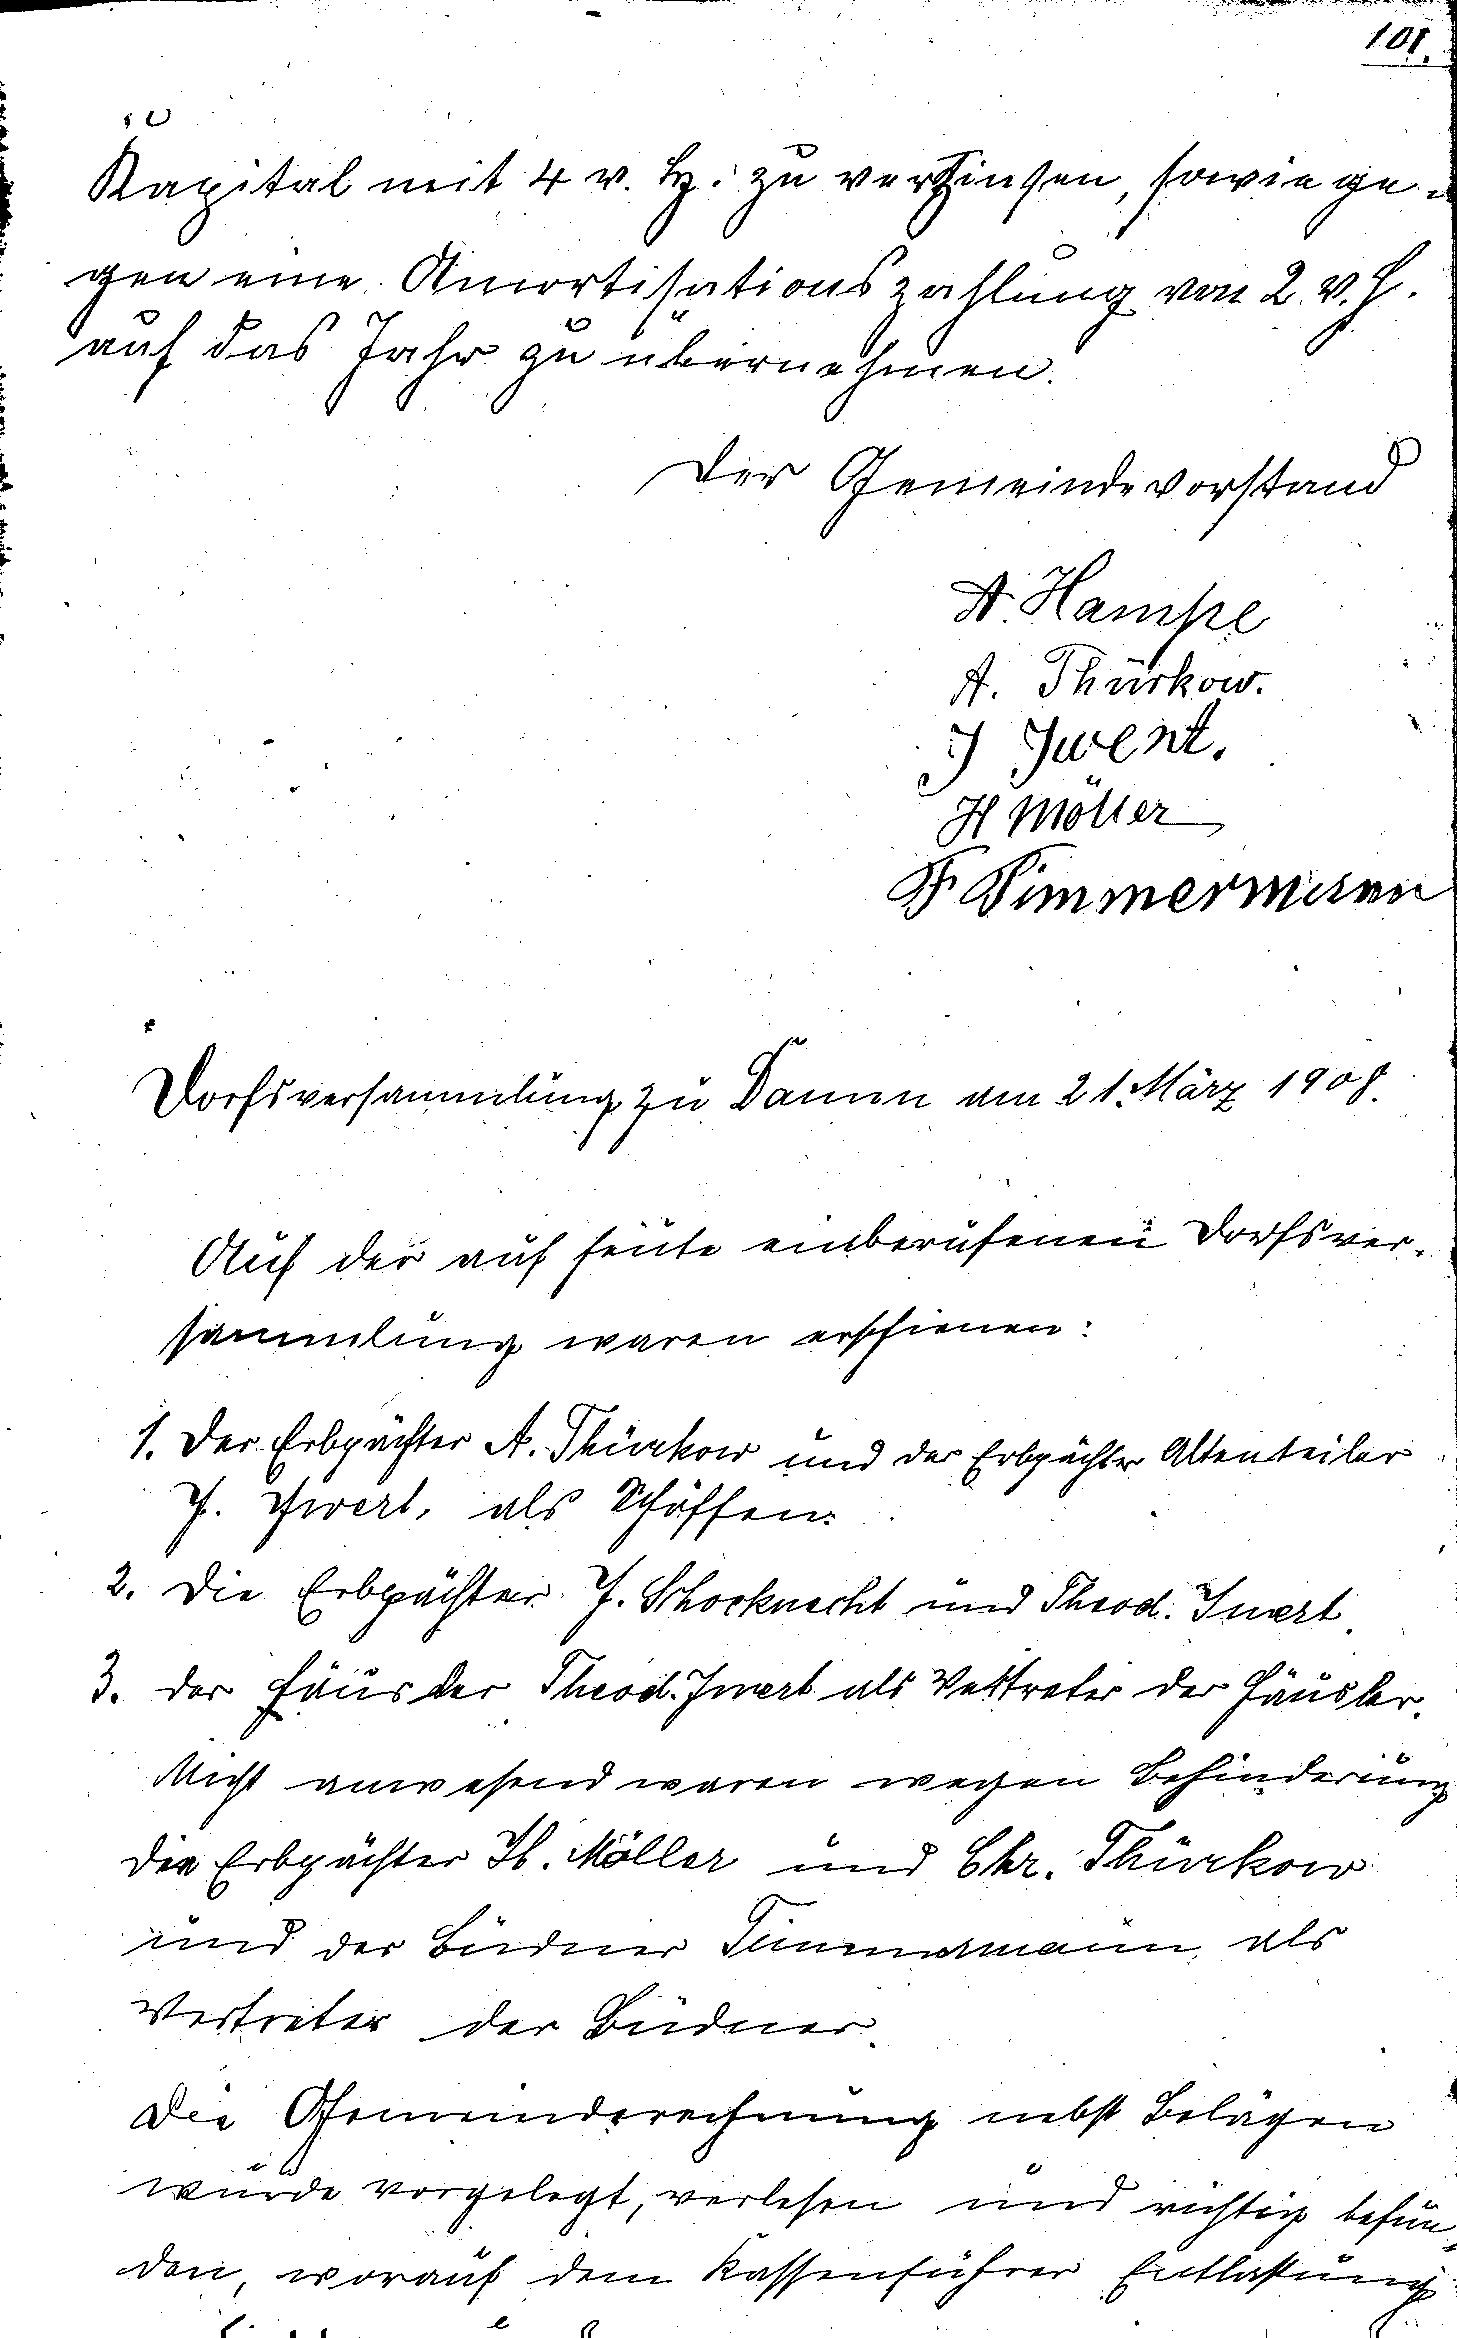 101.
Kapital mit 4 v. H. zu verzinsen, sowie ge-
gen eine Amortisationszahlung von 2 v. H.
auf das Jahr zu übernehmen.
Der Gemeindevorstand
A. Hampe
A. Thürkow.
J Jwent.
H Möller
F Timmermann
Dorfsversammlung zu Damm am 21. März 1908.
Auf der auf heute einberufenen Dorfsver-
sammlung waren erschienen:
1. Der Erbpächter A. Thürkow und der Erbpächter Altenteiler
J. Jwert, als Schöffen.
2. Die Erbpächter J. Schoknecht und Theod. Jwert.
3. Der Häusler Theod. Jwert als Vertreter der Häusler.
Nicht anwesend waren wegen Behinderung
die Erbpächter H. Möller und Chr. Thürkow
und der Büdner Timmermann als
Vertreter der Büdner.
Die Gemeinderechnung nebst Belägen
wurde vorgelegt, verlesen und richtig befun-
den, worauf dem Kassenführer Entlastung